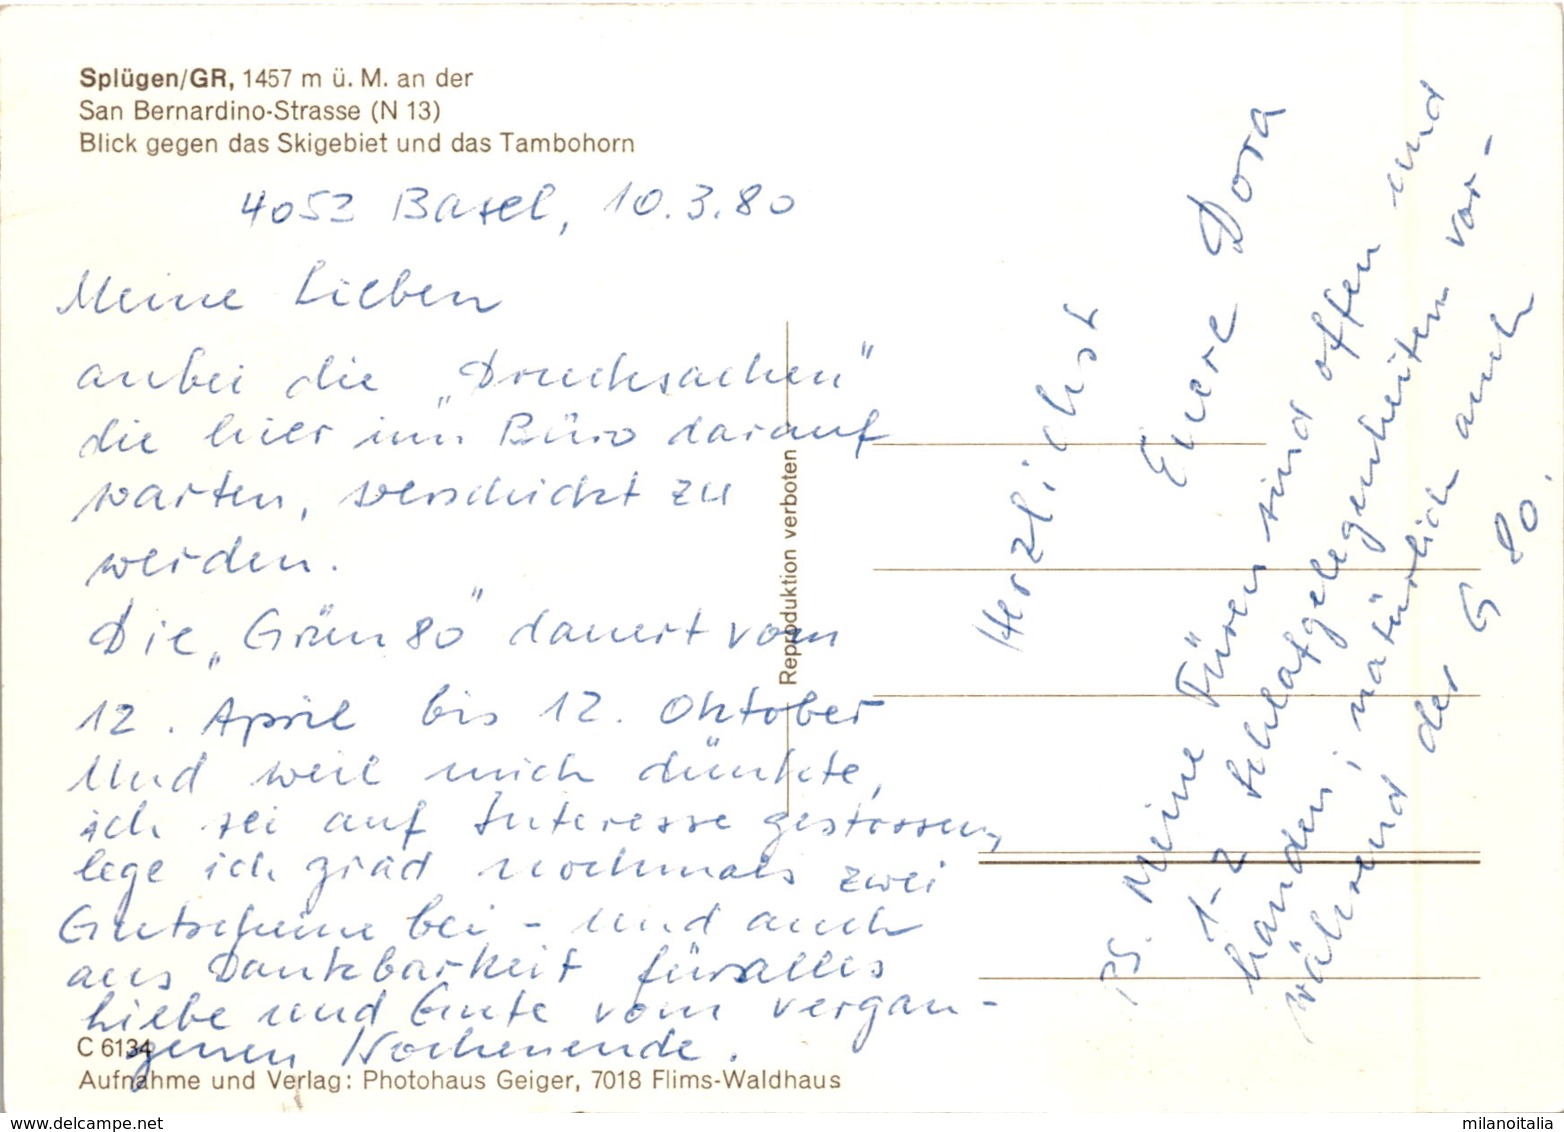 Splügen/GR, 1457 m ü. M. an der
San Bernardino-Strasse (N 13)
Blick gegen das Skigebiet und das Tambohorn
4053 Basel, 10.3.80
Meine Lieben
anbei die „Drucksachen"
die hier im Büro darauf
warten, verschickt zu
werden.
Die „Grün 80" dauert vom
12. April bis 12. Oktober
Und weil mich dünkte,
ich sei auf Interesse gestossen,
lege ich grad nochmals zwei
Gutscheine bei - und auch
aus Dankbarkeit für alles
Liebe und Gute vom vergan-
genen Wochenende.
Herzlichst
Euere Dora
PS. Meine Türen sind offen und
1-2 Schlafgelegenheiten vor-
handen; natürlich auch
während der G 80.
Reproduktion verboten
C 6134
Aufnahme und Verlag: Photohaus Geiger, 7018 Flims-Waldhaus
www.delcampe.net
milanoitalia